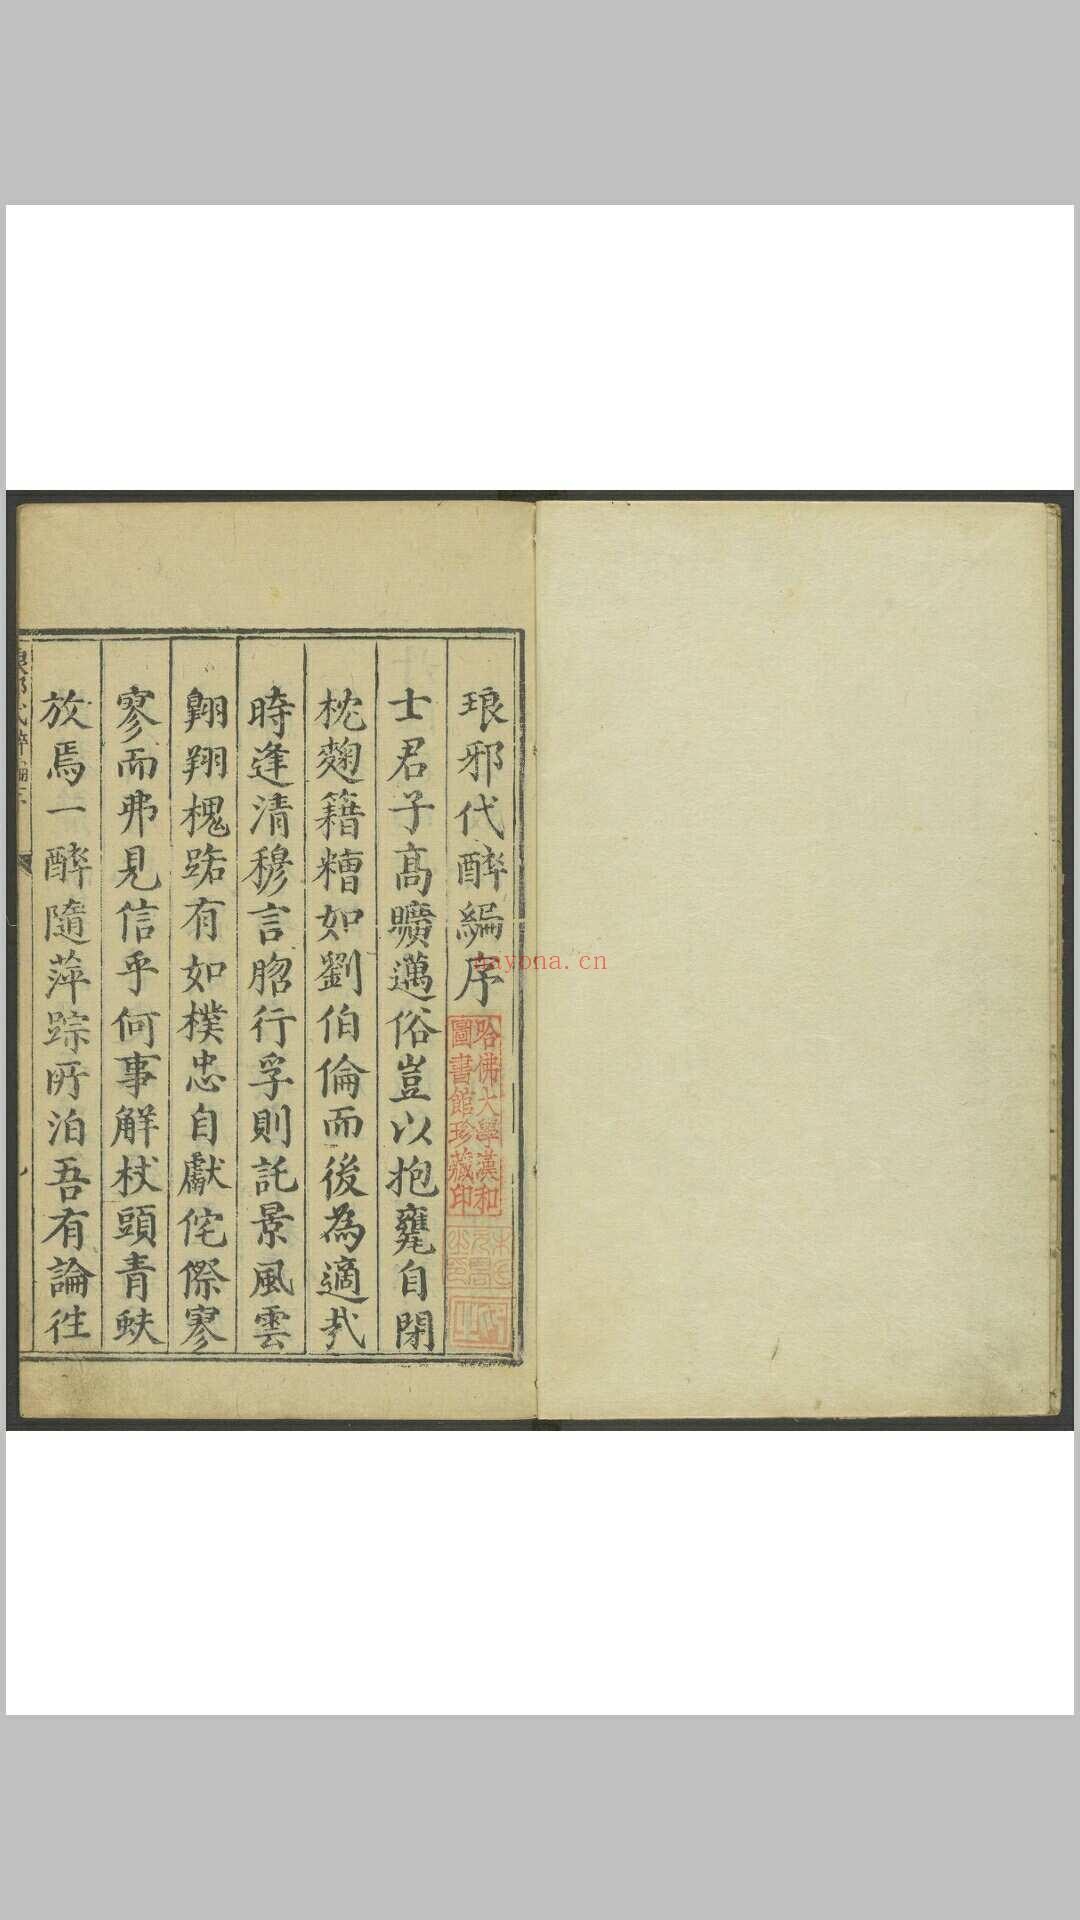 琅邪代醉編序
士君子高曠邁俗豈以抱甕自閉
枕麴籍糟如劉伯倫而後為適㢤
時逢清穆言脗行孚則託景風雲
翺翔槐路有如樸忠自獻侘傺寥
寥而弗見信乎何事解杖頭青蚨
放焉一醉隨萍踪所泊吾有論往
哈佛大學漢和
圖書館珍藏印
nayona.cn